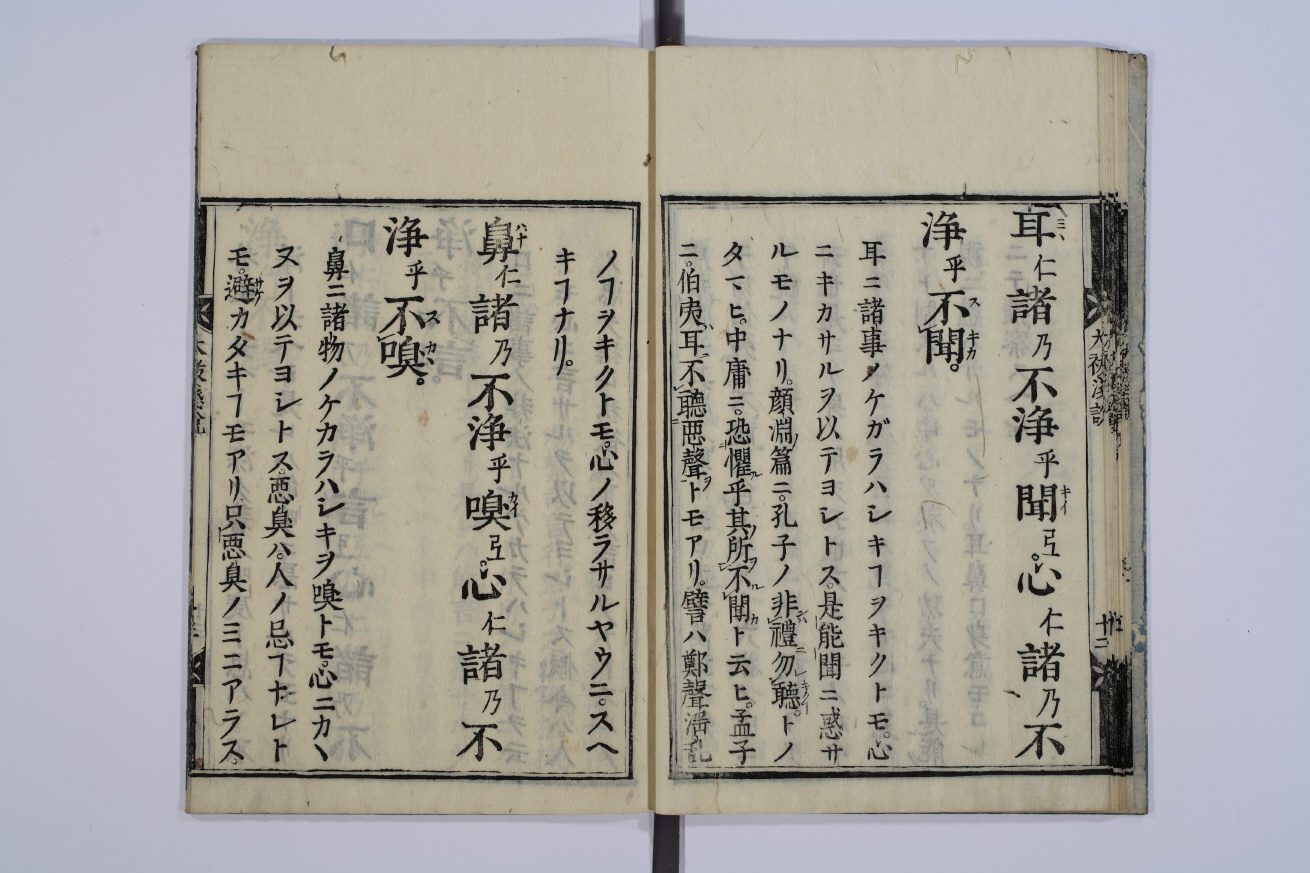 耳仁諸乃不浄乎聞弖。心仁諸乃不
浄乎不聞。
耳ニ諸事ノケガラハシキヿヲキクトモ。心
ニキカサルヲ以テヨシトス。是能聞ニ惑サ
ルモノナリ。顔淵篇ニ。孔子ノ非禮勿聽。トノ
タマヒ。中庸ニ。恐懼乎其所不聞ト云ヒ。孟子
ニ。伯夷耳不聽惡聲トモアリ。譬ハ鄭聲淫乱
ノヿヲキクトモ。心ノ移ラサルヤウニ。スヘ
キヿナリ。
鼻仁諸乃不浄乎嗅弖。心仁諸乃不
浄乎不嗅。
鼻ニ諸物ノケカラハシキヲ嗅トモ。心ニカヽ
ヌヲ以テヨシトス。悪臭ハ。人ノ忌ヿナレト
モ。避カタキヿモアリ。只悪臭ノミニアラス。